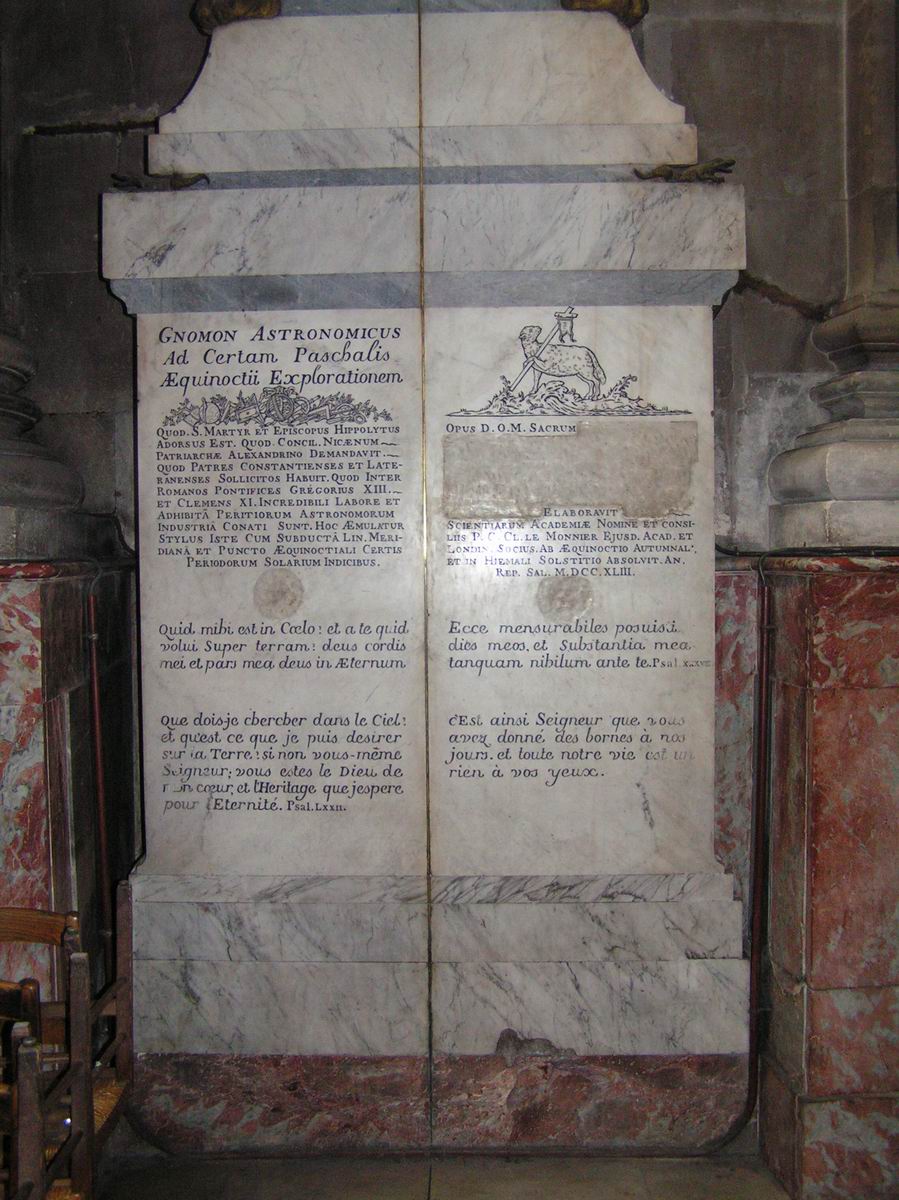 GNOMON ASTRONOMICUS
Ad Certam Paschalis
Æquinoctii Explorationem
QUOD. S. MARTYR ET EPISCOPUS HIPPOLYTUS
ADORSUS EST. QUOD. CONCIL. NICÆNUM
PATRIARCHÆ ALEXANDRINO DEMANDAVIT.
QUOD PATRES CONSTANTIENSES ET LATE-
RANENSES SOLLICITOS HABUIT. QUOD INTER
ROMANOS PONTIFICES GRÉGORIUS XIII.
ET CLEMENS XI. INCREDIBILI LABORE ET
ADHIBITÂ PERITIORUM ASTRONOMORUM
INDUSTRIÂ CONATI SUNT. HOC ÆMULATUR
STYLUS ISTE CUM SUBDUCTÂ LIN. MERI-
DIANÂ ET PUNCTO ÆQUINOCTIALI CERTIS
PERIODORUM SOLARIUM INDICIBUS.
Quid mihi est in Cœlo? et a te quid
volui Super terram? deus cordis
mei, et pars mea deus in Æternum
Que doisje chercher dans le Ciel?
et qu'est ce que je puis desirer
sur la Terre? si non vous-même
Seigneur; vous estes le Dieu de
cœur, et l'Heritage que jespere
pour l'Eternité. Psal. LXXII.
OPUS D.O.M. SACRUM
ELABORAVIT
SCIENTIARUM ACADEMIÆ NOMINE ET CONSI-
LIIS P. C. CL. LE MONNIER EJUSD. ACAD. ET
LONDIN. SOCIUS. AB ÆQUINOCTIO AUTUMNALI
ET IN HIEMALI SOLSTITIO ABSOLVIT. AN.
REP. SAL. M.DCC.XLIII.
Ecce mensurabiles posuisti
dies meos, et Substantia mea
tanquam nihilum ante te. Psal.
c'Est ainsi Seigneur que vous
avez donné des bornes à nos
jours. et toute notre vie est un
rien à vos yeux.